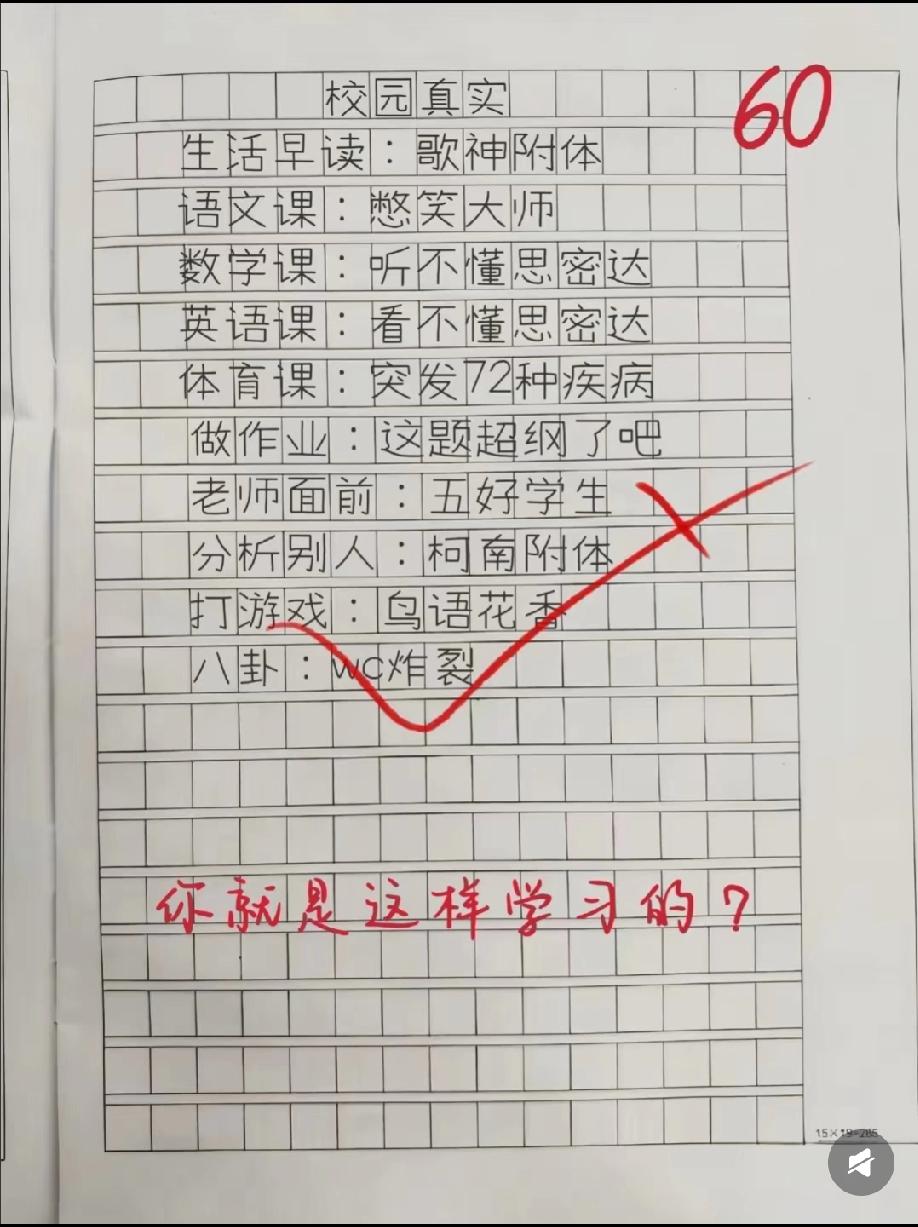 校园真实
60
生活早读：歌神附体
语文课：憋笑大师
数学课：听不懂思密达
英语课：看不懂思密达
体育课：突发72种疾病
做作业：这题超纲了吧
老师面前：五好学生
分析别人：柯南附体
打游戏：鸟语花香
八卦：wc炸裂
你就是这样学习的？
15×19=285